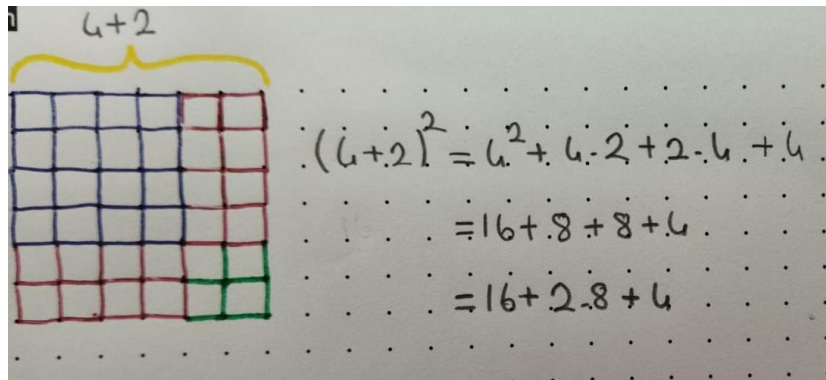 4+2
(4+2)² = 4² + 4·2 + 2·4 + 4
= 16 + 8 + 8 + 4
= 16 + 2·8 + 4